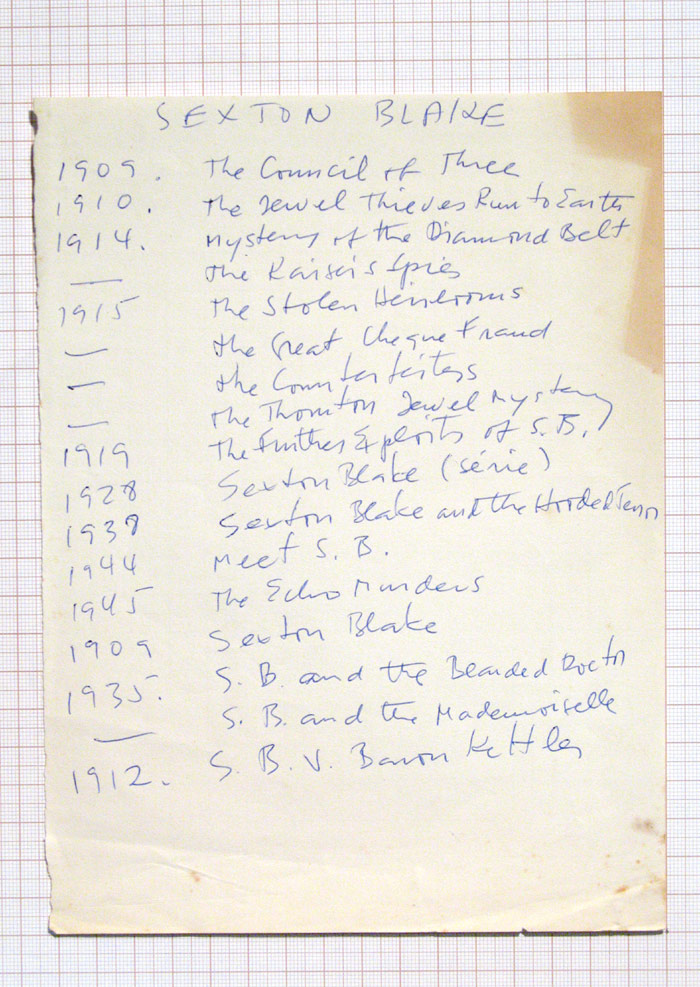 SEXTON BLAKE
1909. The Council of Three
1910. The Jewel Thieves Run to Earth
1914. Mystery of the Diamond Belt
— The Kaiser's Spies
1915 The Stolen Heirlooms
— the Great Cheque Fraud
— the Counterfeiters
— The Thornton Jewel Mystery
1919 The Further Exploits of S.B.
1928 Sexton Blake (série)
1938 Sexton Blake and the Hooded Terror
1944 Meet S. B.
1945 The Echo Murders
1909 Sexton Blake
1935. S. B. and the Bearded Doctor
— S. B. and the Mademoiselle
1912. S. B. V. Baron Kettler